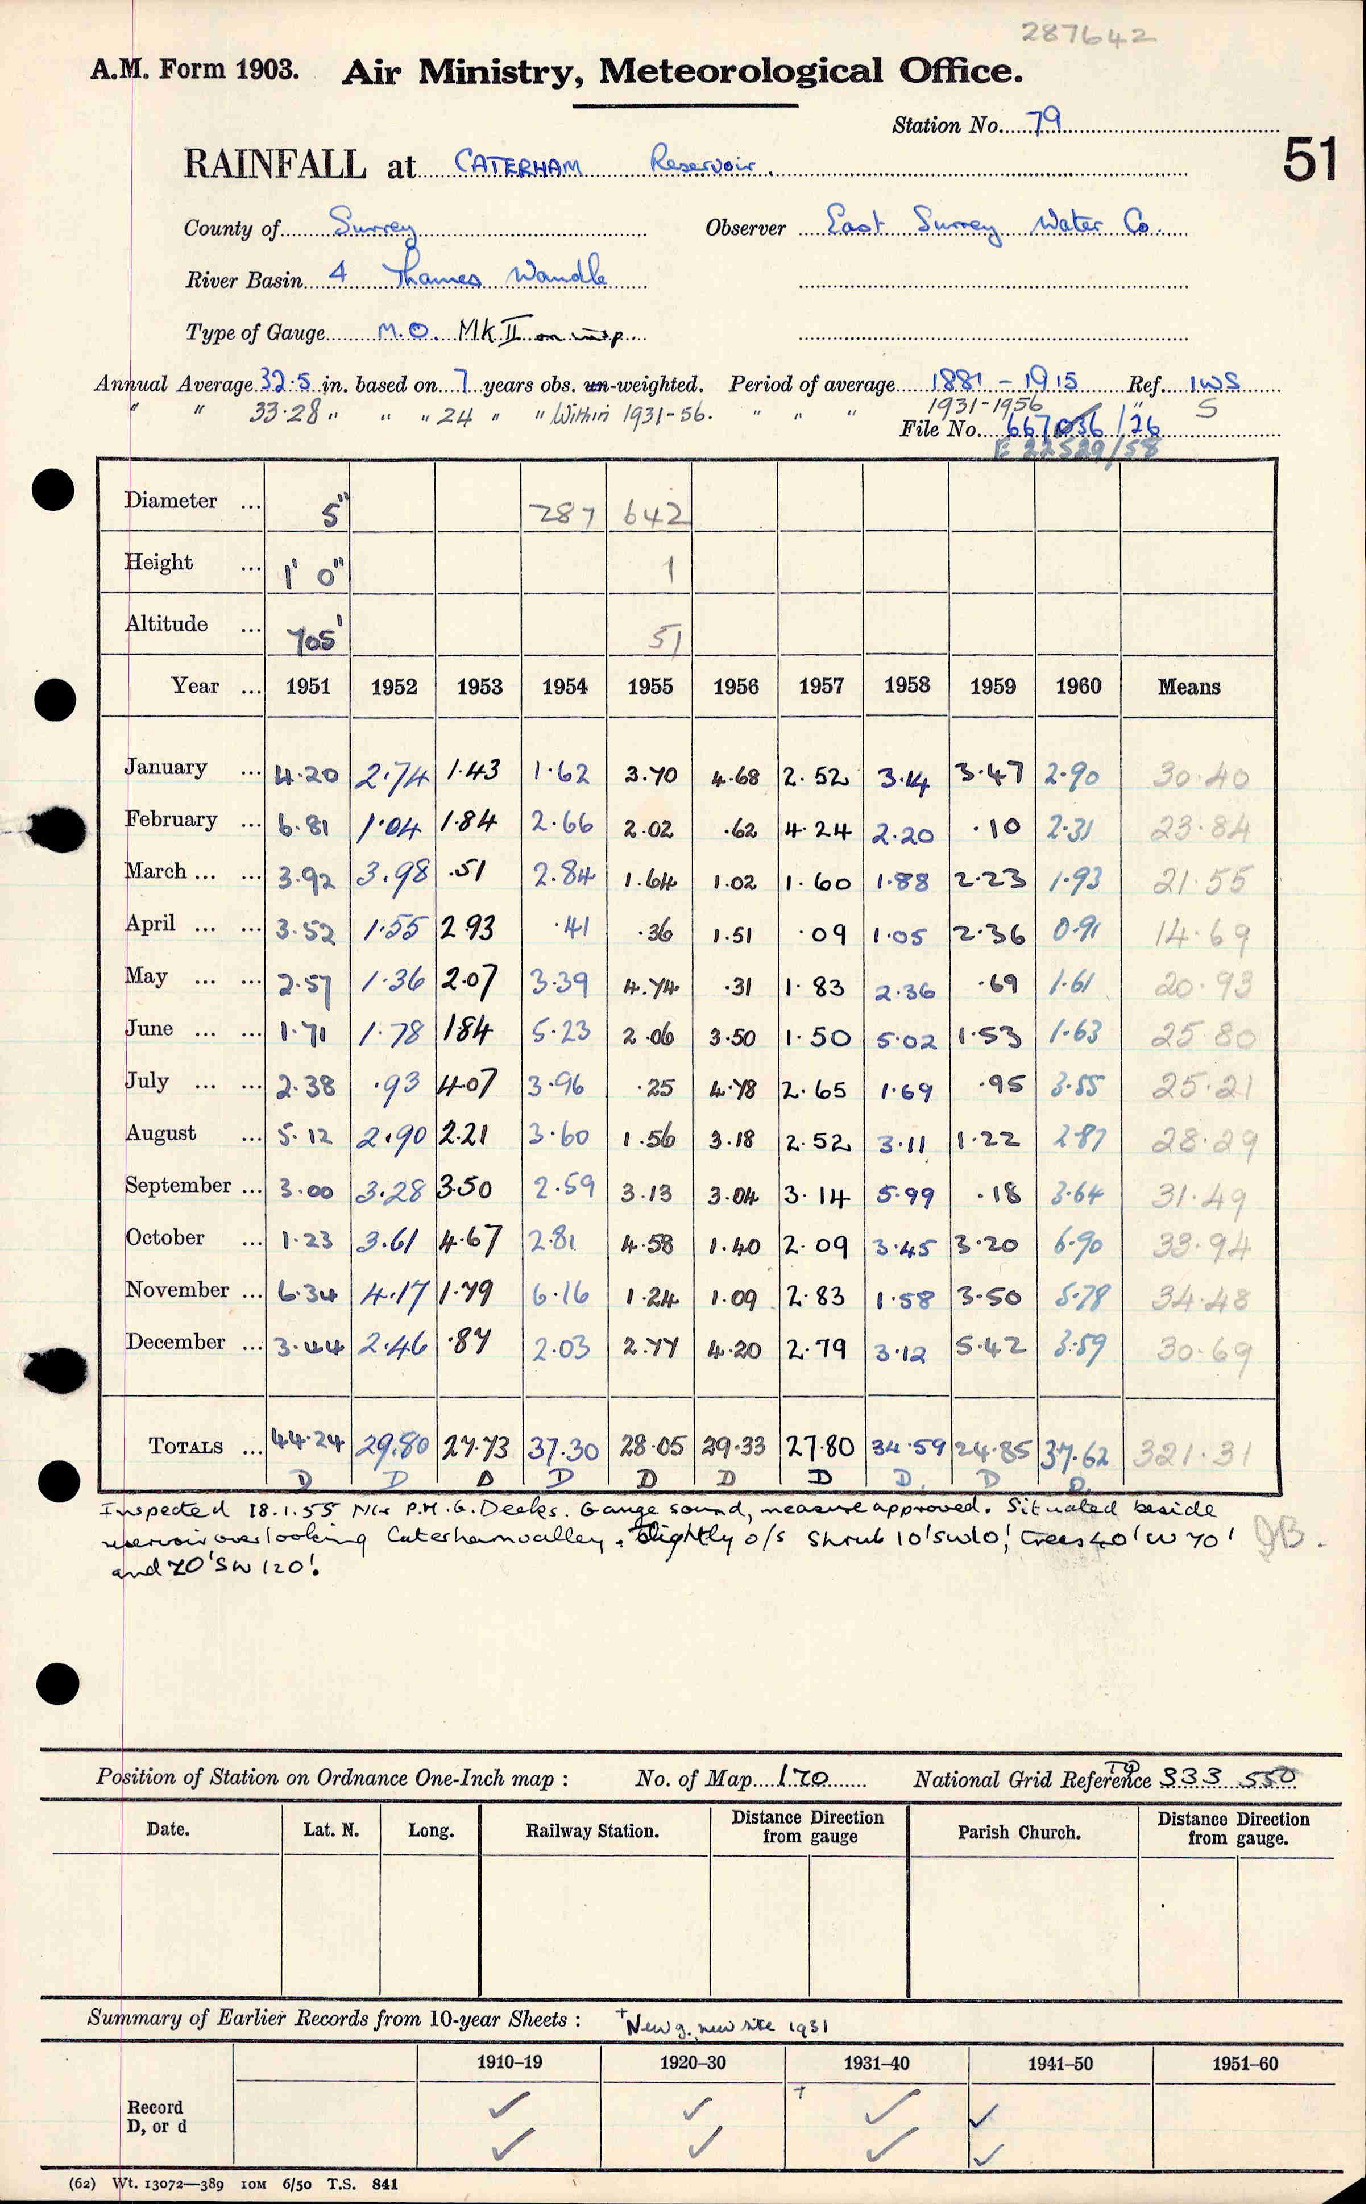 287642
A.M. Form 1903. Air Ministry, Meteorological Office.
Station No. 79
51
RAINFALL at CATERHAM Reservoir.
County of Surrey Observer East Surrey Water Co.
River Basin 4 Thames Wandle
Type of Gauge M.O. Mk II on insp.
Annual Average 32.5 in. based on 7 years obs. un-weighted. Period of average 1881 - 1915 Ref. IWS
" " 33.28 " " " 24 " " Within 1931-56. " " " 1931-1956 " S
File No. 667036/26
E 22529/58
Diameter ... 5" 287 642
Height ... 1' 0" 1
Altitude ... 705' 51
Year ... 1951 1952 1953 1954 1955 1956 1957 1958 1959 1960 Means
January ... 4.20 2.74 1.43 1.62 3.70 4.68 2.52 3.14 3.47 2.90 30.40
February ... 6.81 1.04 1.84 2.66 2.02 .62 4.24 2.20 .10 2.31 23.84
March ... ... 3.92 3.98 .51 2.84 1.64 1.02 1.60 1.88 2.23 1.93 21.55
April ... ... 3.52 1.55 2.93 .41 .36 1.51 .09 1.05 2.36 0.91 14.69
May ... ... 2.57 1.36 2.07 3.39 4.74 .31 1.83 2.36 .69 1.61 20.93
June ... ... 1.71 1.78 1.84 5.23 2.06 3.50 1.50 5.02 1.53 1.63 25.80
July ... ... 2.38 .93 4.07 3.96 .25 4.78 2.65 1.69 .95 3.55 25.21
August ... 5.12 2.90 2.21 3.60 1.56 3.18 2.52 3.11 1.22 2.87 28.29
September ... 3.00 3.28 3.50 2.59 3.13 3.04 3.14 5.99 .18 3.64 31.49
October ... 1.23 3.61 4.67 2.81 4.58 1.40 2.09 3.45 3.20 6.90 33.94
November ... 6.34 4.17 1.79 6.16 1.24 1.09 2.83 1.58 3.50 5.78 34.48
December ... 3.44 2.46 .87 2.03 2.77 4.20 2.79 3.12 5.42 3.59 30.69
TOTALS ... 44.24 29.80 27.73 37.30 28.05 29.33 27.80 34.59 24.85 37.62 321.31
D D D D D D D D. D D.
Inspected 18.1.55 Mr P.H.G. Deeks. Gauge sound, measure approved. Situated beside
reservoir overlooking Caterham valley. Slightly o/s Shrub 10' SW 10', trees 40' W 70' JB.
and 70' SW 120'.
Position of Station on Ordnance One-Inch map : No. of Map 170 National Grid Reference TQ 333 550
Date. Lat. N. Long. Railway Station. Distance Direction from gauge Parish Church. Distance Direction from gauge.
Summary of Earlier Records from 10-year Sheets : + New g. new site 1931
1910–19 1920–30 1931–40 1941–50 1951–60
Record ✓ ✓ + ✓ ✓
D, or d ✓ ✓ ✓ ✓
(62) Wt. 13072—389 10M 6/50 T.S. 841